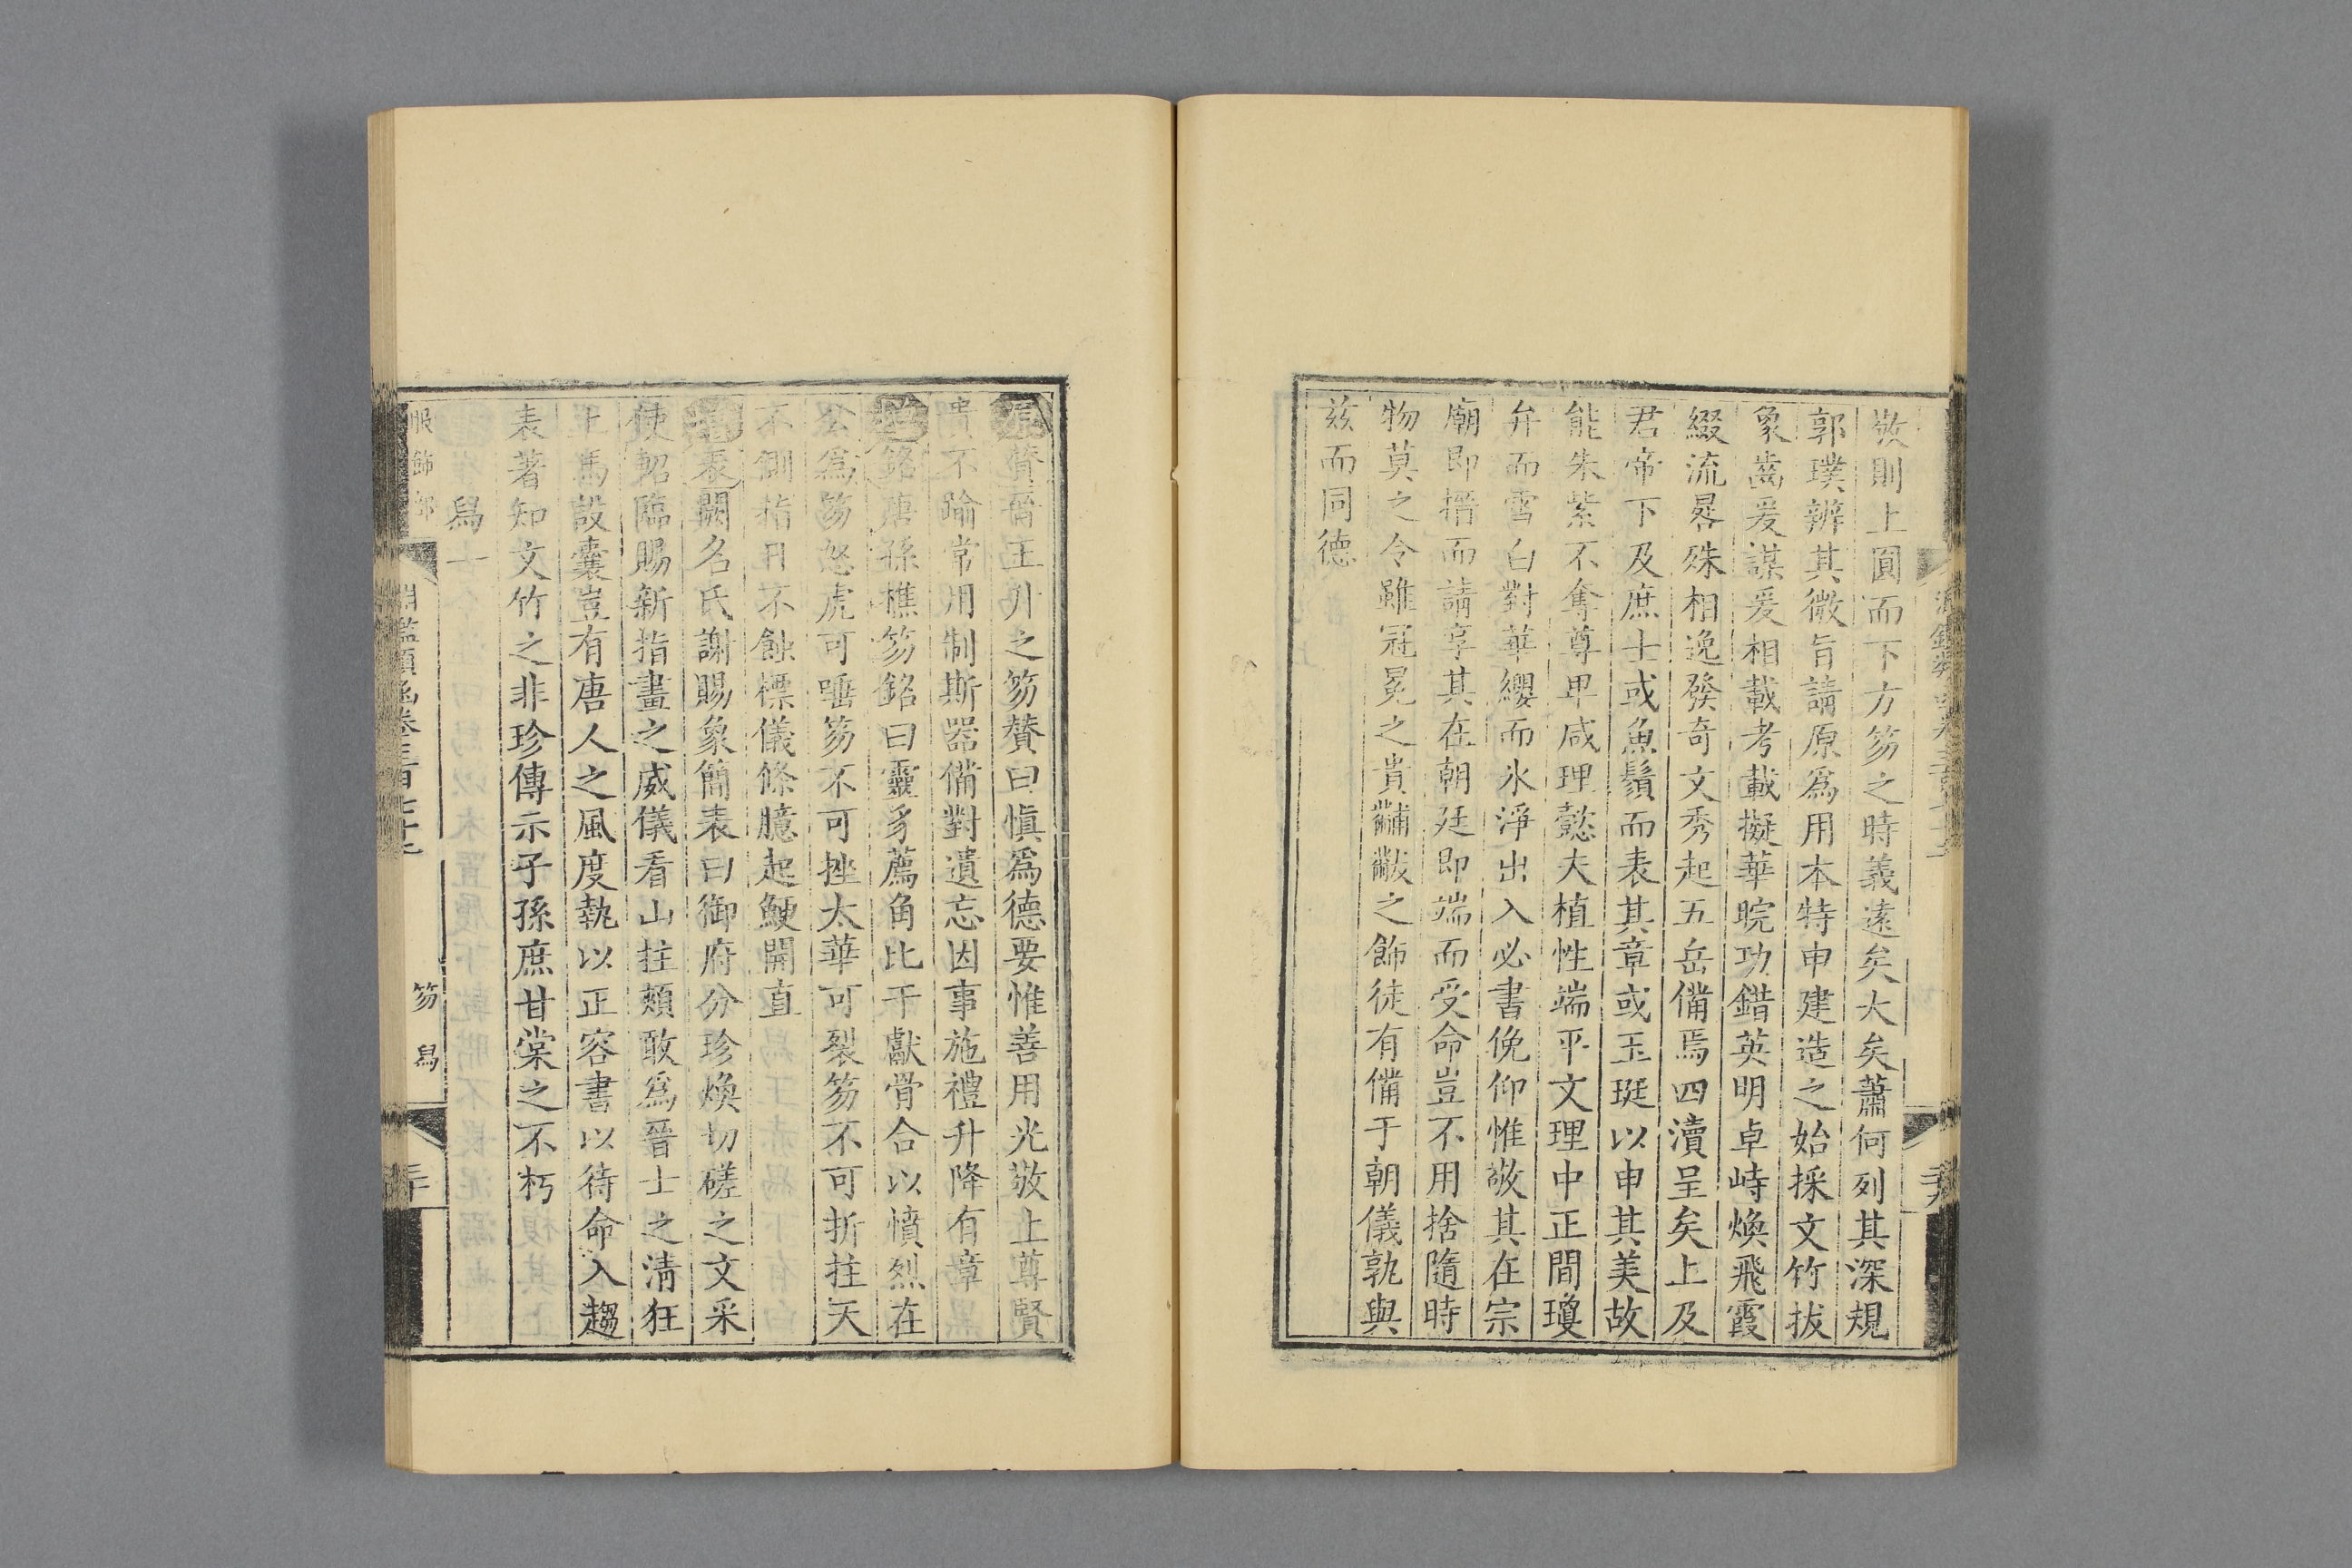 敬則上圓而下方笏之時義遠矣大矣蕭何列其深規
郭璞辨其微旨請原爲用本特申建造之始採文竹拔
象齒爰謀爰相載考載擬華晥功錯英明卓峙煥飛霞
綴流晷殊相逸發奇文秀起五岳備焉四瀆呈矣上及
君帝下及庶士或魚鬚而表其章或玉珽以申其美故
能朱紫不奪尊卑咸理懿夫植性端平文理中正間瓊
弁而雪白對華纓而氷淨出入必書俛仰惟敬其在宗
廟即搢而請享其在朝廷即端而受命豈不用捨隨時
物莫之令雖冠冕之貴黼黻之飾徒有備于朝儀孰與
兹而同德
贊晉王升之笏贊曰愼爲德要惟善用光敬上尊賢
貴不踰常用制斯器備對遺忘因事施禮升降有章
銘唐孫樵笏銘曰靈豸薦角比干獻骨合以憤烈在
公爲笏怒虎可唾笏不可挫太華可裂笏不可折拄天
不側指日不蝕標儀條臆起鯁開直
表闕名氏謝賜象簡表曰御府分珍煥切磋之文采
使軺臨賜新指畫之威儀看山拄頰敢爲晉士之清狂
上馬設囊豈有唐人之風度執以正容書以待命入趨
表著知文竹之非珍傳示子孫庶甘棠之不朽
舄一
服飾部 淵鑑類函卷三百七十七 笏 舄 三十